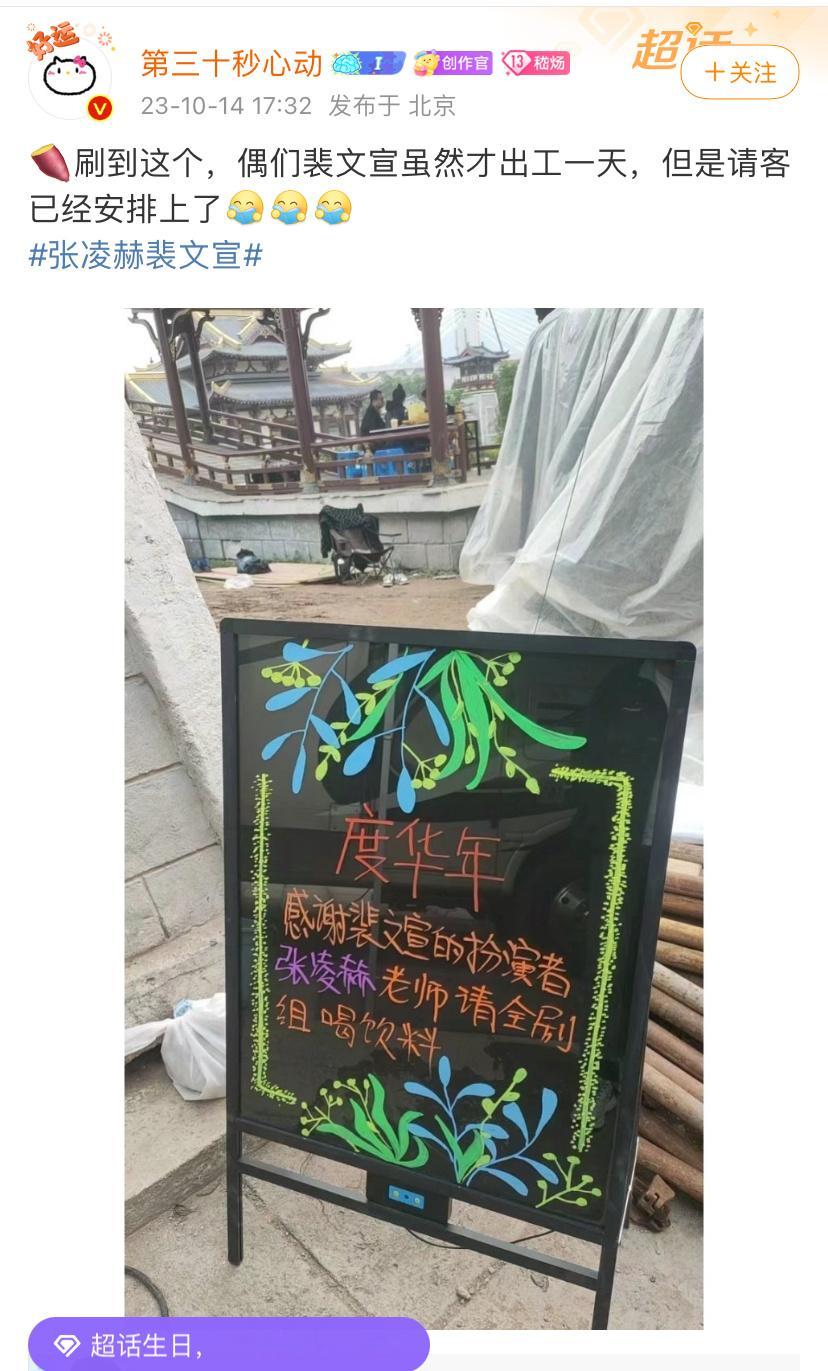 好运
超话
第三十秒心动 I 创作官 13 嵇炀
+关注
23-10-14 17:32 发布于 北京
刷到这个，偶们裴文宣虽然才出工一天，但是请客
已经安排上了
#张凌赫裴文宣#
度华年
感谢裴文宣的扮演者
张凌赫老师请全剧
组喝饮料
超话生日，